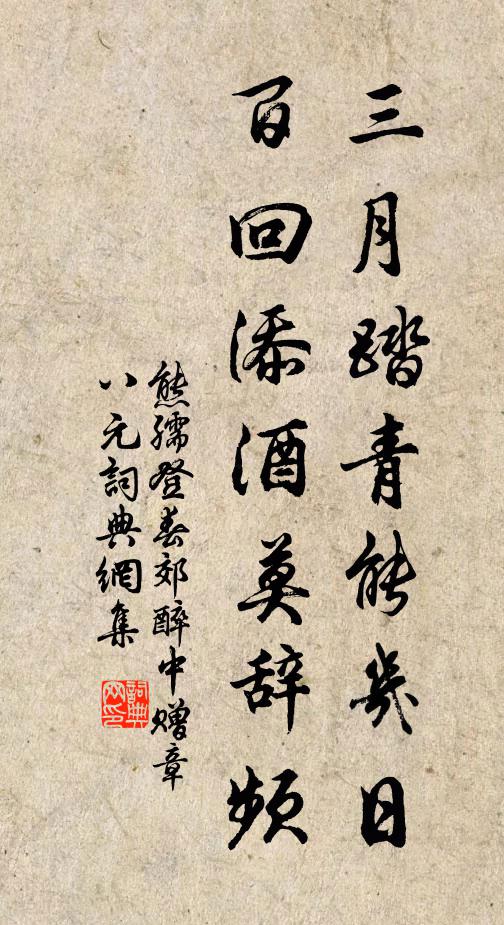 三月踏青能幾日
百回添酒莫辞頻
熊孺登春郊醉中赠章
八元詞典網集
詞典网印